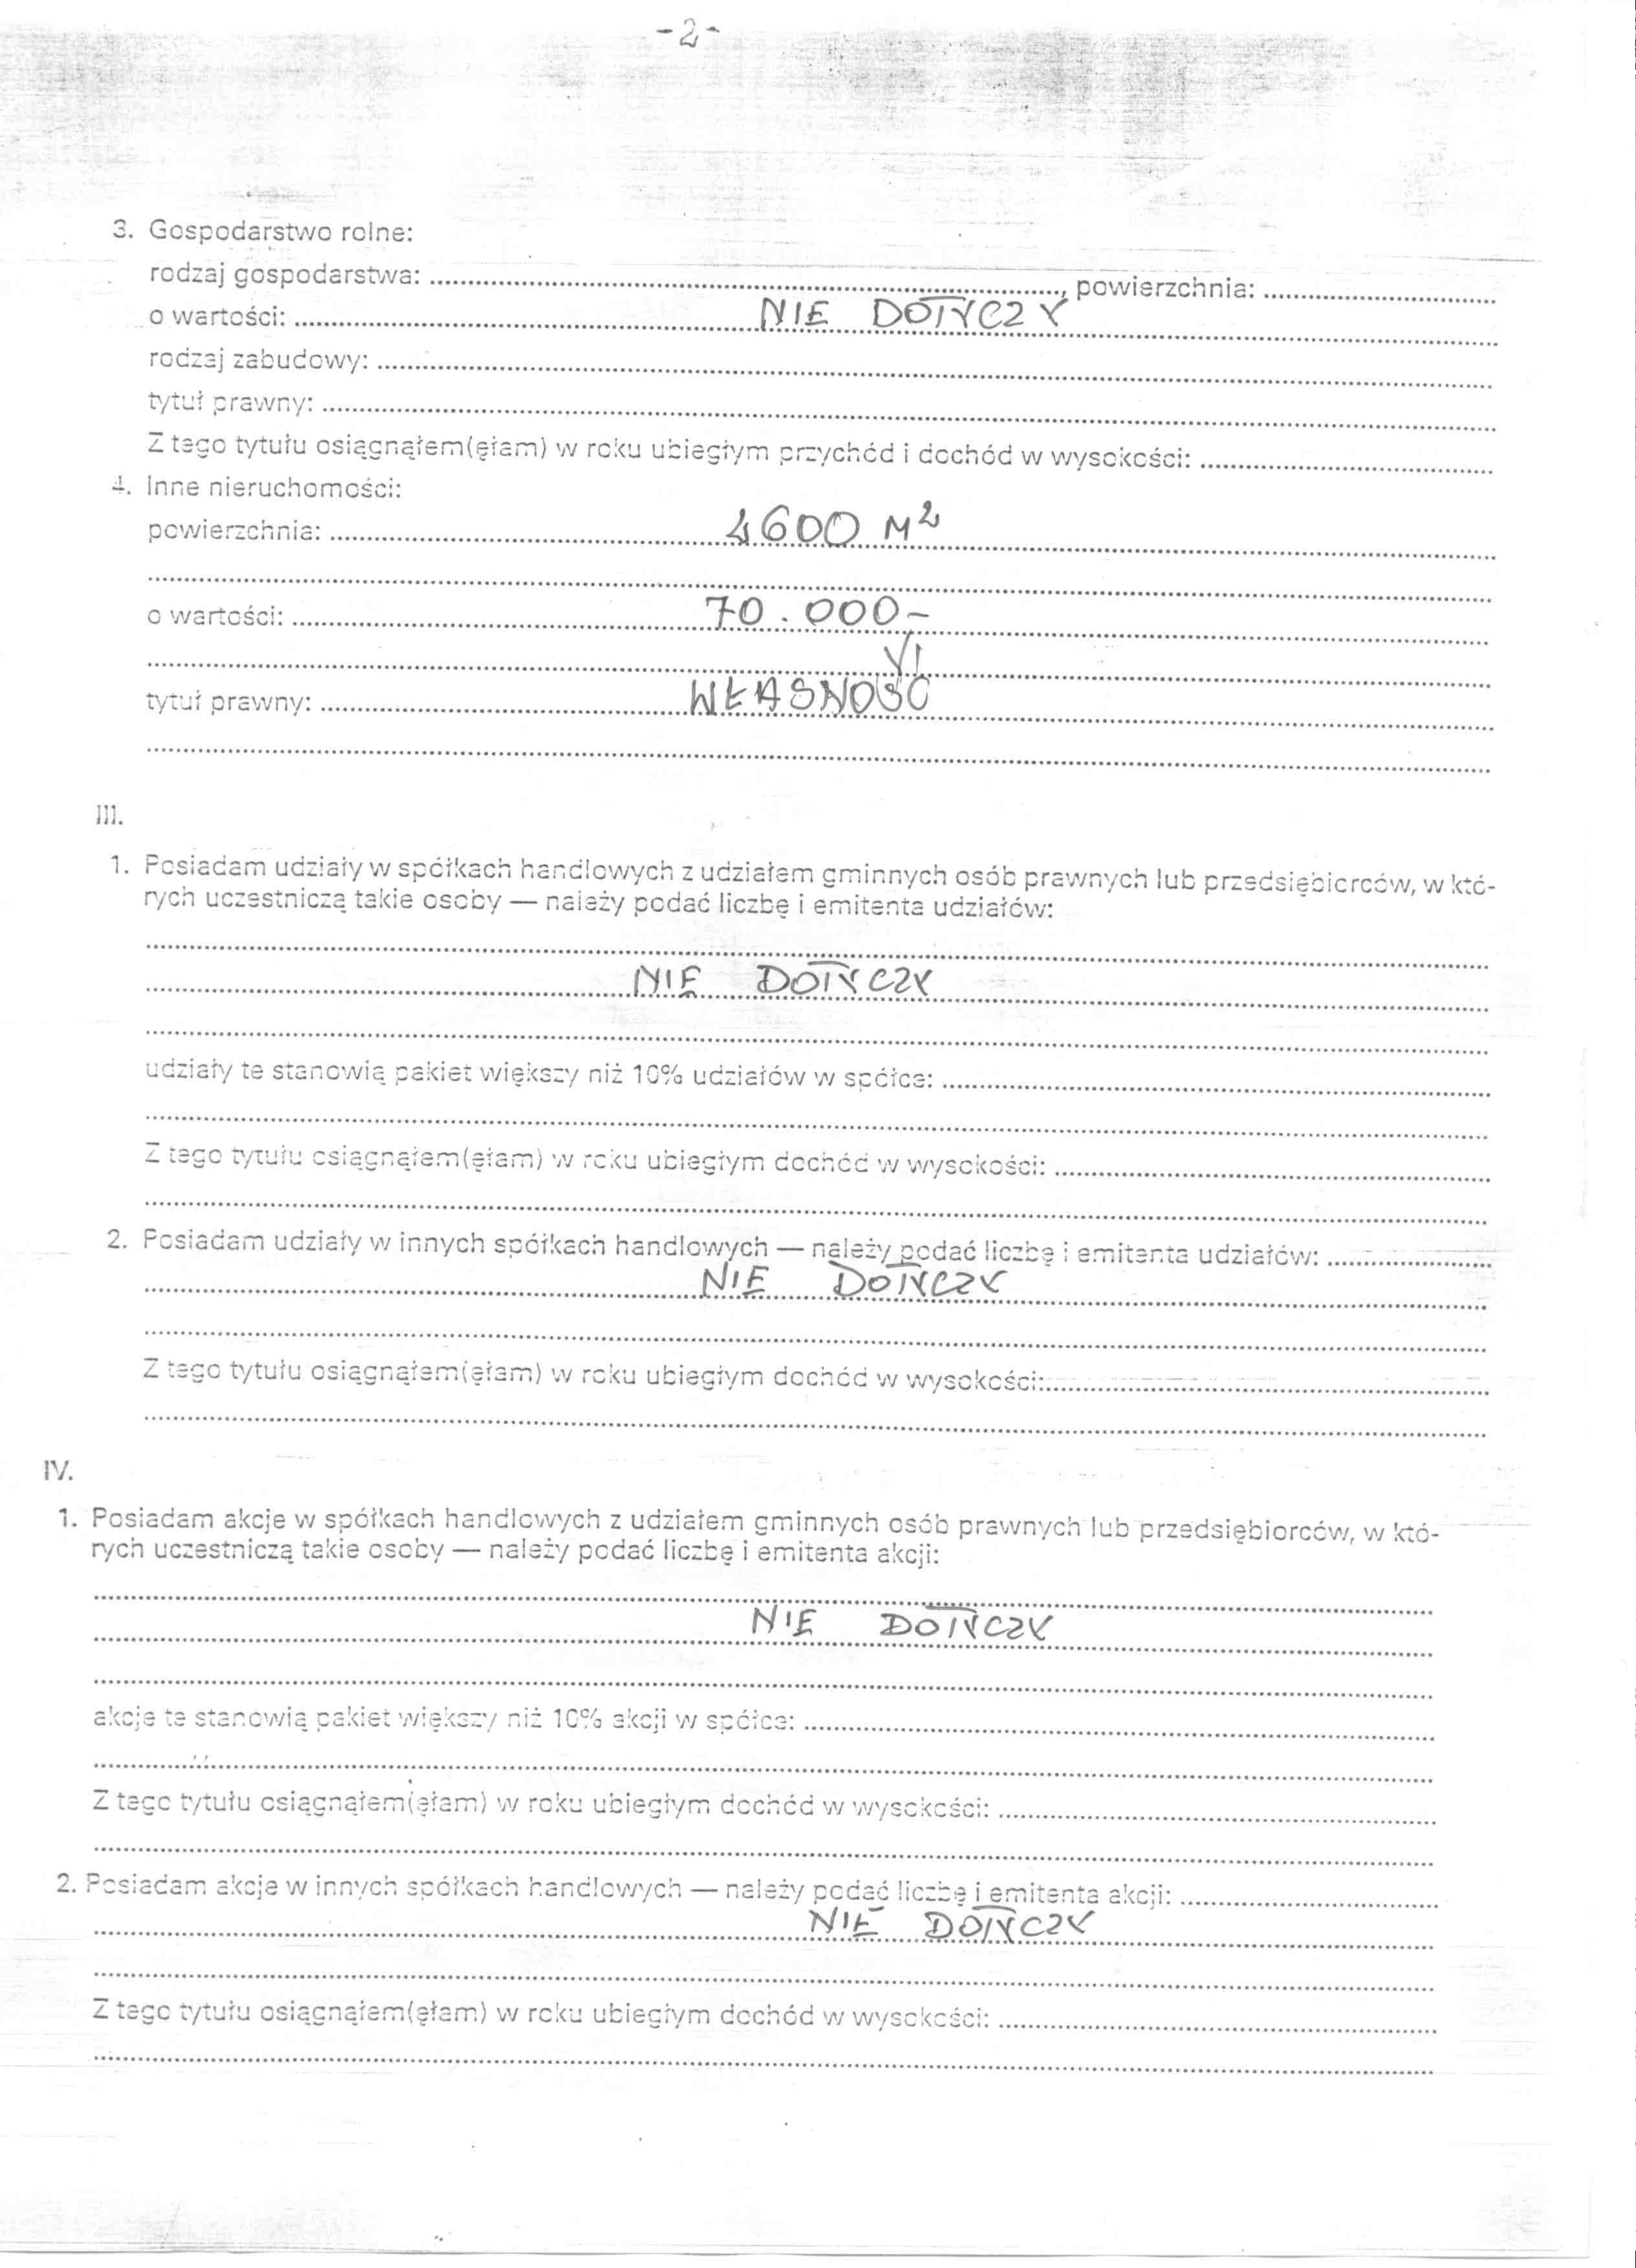 - 2 -
3. Gospodarstwo rolne:
rodzaj gospodarstwa: , powierzchnia:
o wartości: NIE DOTYCZY
rodzaj zabudowy:
tytuł prawny:
Z tego tytułu osiągnąłem(ęłam) w roku ubiegłym przychód i dochód w wysokości:
4. Inne nieruchomości:
powierzchnia: 2600 M²
o wartości: 70.000-
tytuł prawny: WŁASNOŚĆ
III.
1. Posiadam udziały w spółkach handlowych z udziałem gminnych osób prawnych lub przedsiębiorców, w któ-
rych uczestniczą takie osoby — należy podać liczbę i emitenta udziałów:
NIE DOTYCZY
udziały te stanowią pakiet większy niż 10% udziałów w spółce:
Z tego tytułu osiągnąłem(ęłam) w roku ubiegłym dochód w wysokości:
2. Posiadam udziały w innych spółkach handlowych — należy podać liczbę i emitenta udziałów:
NIE DOTYCZY
Z tego tytułu osiągnąłem(ęłam) w roku ubiegłym dochód w wysokości:
IV.
1. Posiadam akcje w spółkach handlowych z udziałem gminnych osób prawnych lub przedsiębiorców, w któ-
rych uczestniczą takie osoby — należy podać liczbę i emitenta akcji:
NIE DOTYCZY
akcje te stanowią pakiet większy niż 10% akcji w spółce:
Z tego tytułu osiągnąłem(ęłam) w roku ubiegłym dochód w wysokości:
2. Posiadam akcje w innych spółkach handlowych — należy podać liczbę i emitenta akcji:
NIE DOTYCZY
Z tego tytułu osiągnąłem(ęłam) w roku ubiegłym dochód w wysokości: